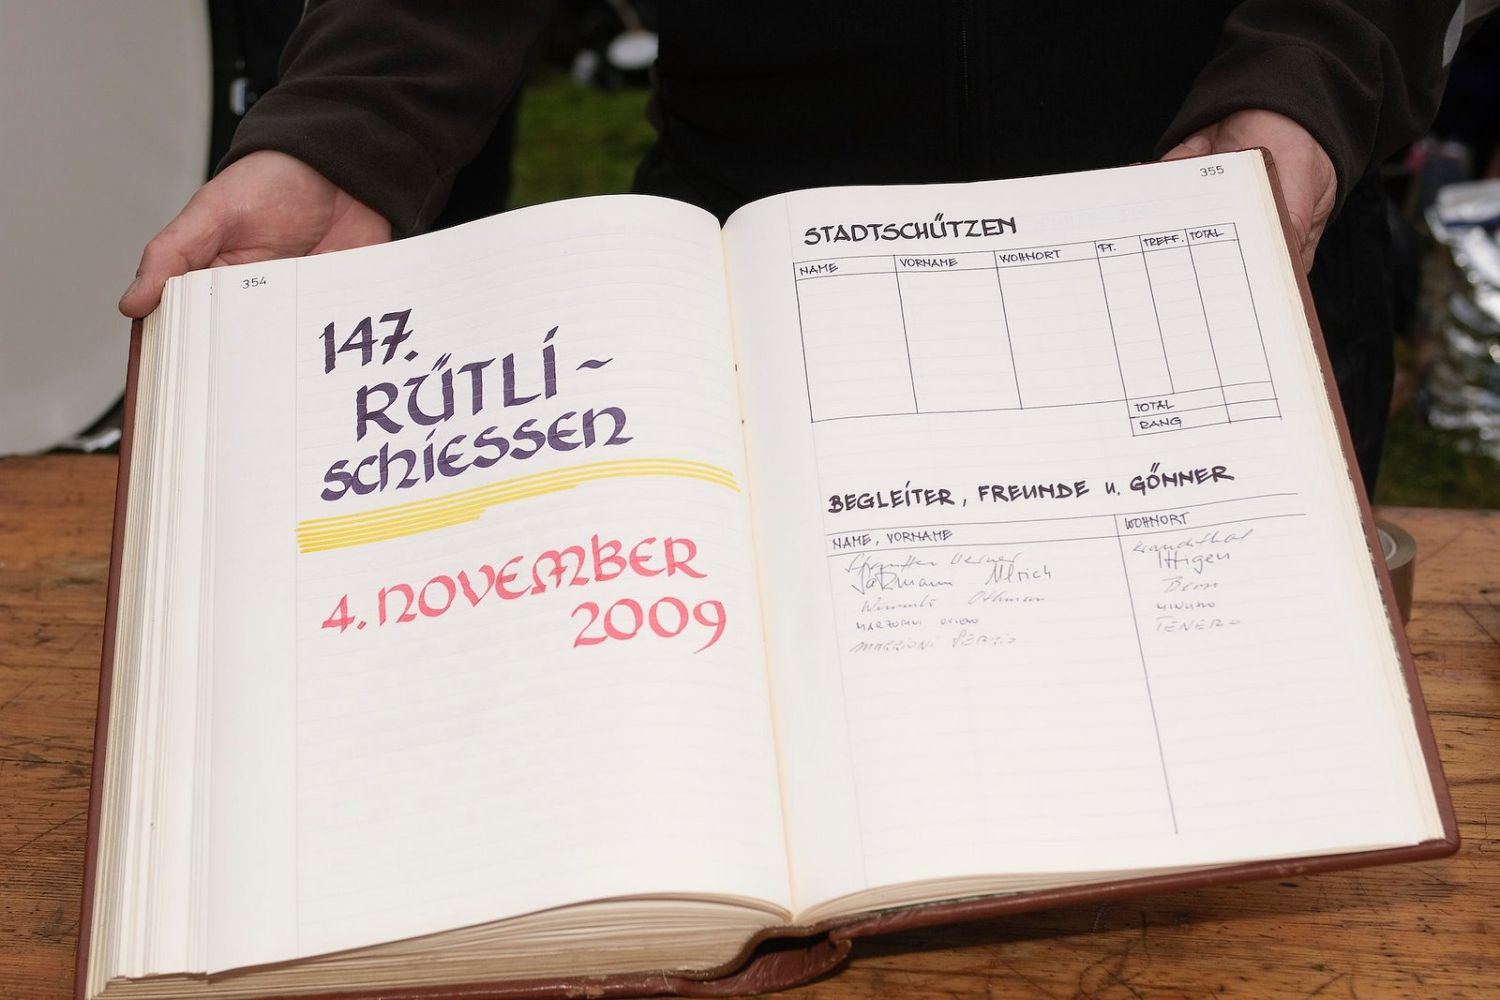 354
147.
RÜTLI~
schiessen
4. NOVEMBER
2009
355
STADTSCHÜTZEN
NAME VORNAME WOHNORT PT. TREFF. TOTAL
TOTAL
RANG
BEGLEITER, FREUNDE u. GÖNNER
NAME, VORNAME WOHNORT
Werner
Ulrich Ittigen
Othmar Bern
MINUSIO
MARZORINI TENERO